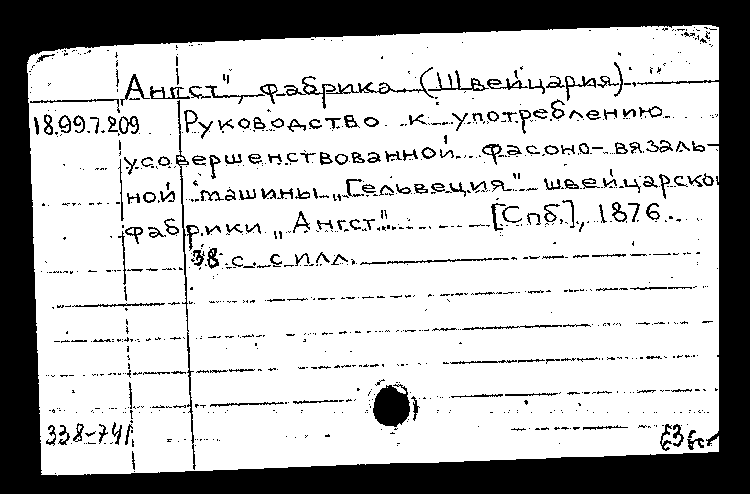 „Ангст", фабрика (Швейцария).
18.99.7.209 Руководство к употреблению
усовершенствованной фасоно-вязаль-
ной машины „Гельвеция" швейцарско
фабрики „Ангст". [Спб.], 1876.
38 с. с илл.
338-741